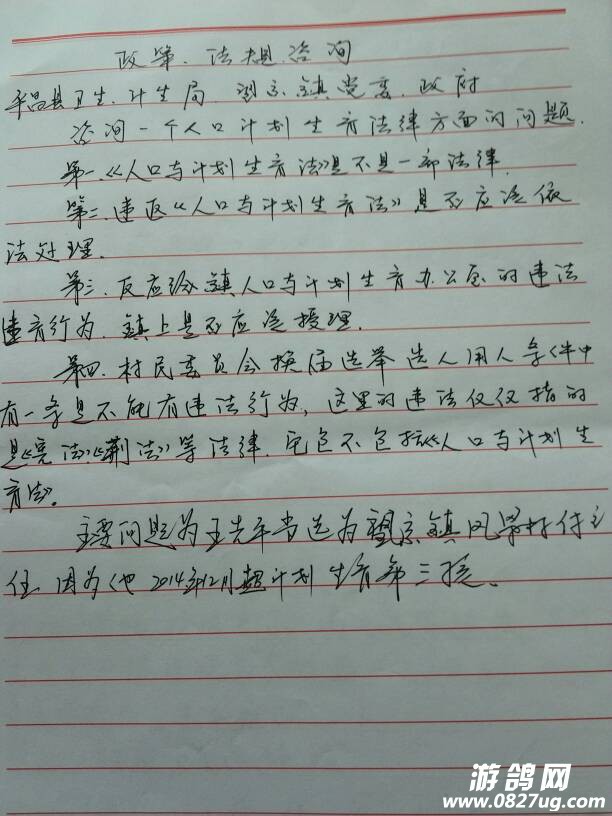 政策、法规咨询
平昌县卫生、计生局 望京镇党委、政府
咨询一个人口计划生育法律方面的问题.
第一、《人口与计划生育法》是不是一部法律.
第二、违返《人口与计划生育法》是否应该依
法处理.
第三、反应给镇人口与计划生育办公室的违法
违育行为,镇上是否应该授理.
第四、村民委员会换届选举选人用人条件中
有一条是不能有违法行为,这里的违法仅仅指的
是《宪法》《荆法》等法律.它包不包括《人口与计划生
育法》.
主要问题为王先平当选为望京镇风梁村村主
任,因为他2014年12月超计划生育第三孩.
游鸽网
www.0827ug.com